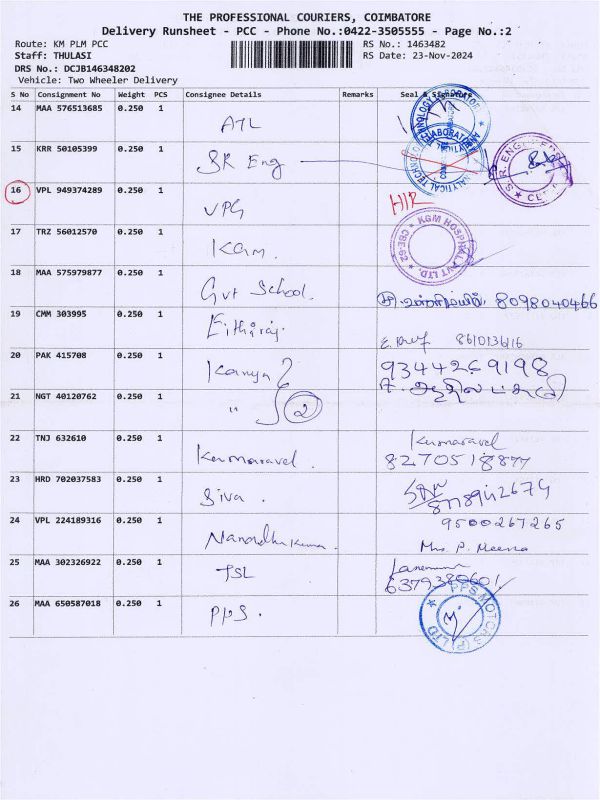 THE PROFESSIONAL COURIERS, COIMBATORE
Delivery Runsheet - PCC - Phone No.:0422-3505555 - Page No.:2
Route: KM PLM PCC
RS No.: 1463482
Staff: THULASI
RS Date: 23-Nov-2024
DRS No.: DCJB146348202
Vehicle: Two Wheeler Delivery
S No Consignment No Weight PCS Consignee Details Remarks Seal & Signature
14 MAA 576513685 0.250 1 ATL
15 KRR 50105399 0.250 1 SR Eng
16 VPL 949374289 0.250 1 VPG H/R
17 TRZ 56012570 0.250 1 KGM. KGM HOSPITALITY PVT LTD. CBE-62
18 MAA 575979877 0.250 1 Gvt School. 8098040466
19 CMM 303995 0.250 1 8610136116
20 PAK 415708 0.250 1 Kanya 9344269198
21 NGT 40120762 0.250 1 " 2
22 TNJ 632610 0.250 1 Kumaravel. Kumaravel
8270518877
23 HRD 702037583 0.250 1 Siva.
9500267265
24 VPL 224189316 0.250 1 Nanadhu Kumar. Mrs. P. Meena
25 MAA 302326922 0.250 1 TSL
6379380601
26 MAA 650587018 0.250 1 PPS. PPS MOTORS (P) LTD